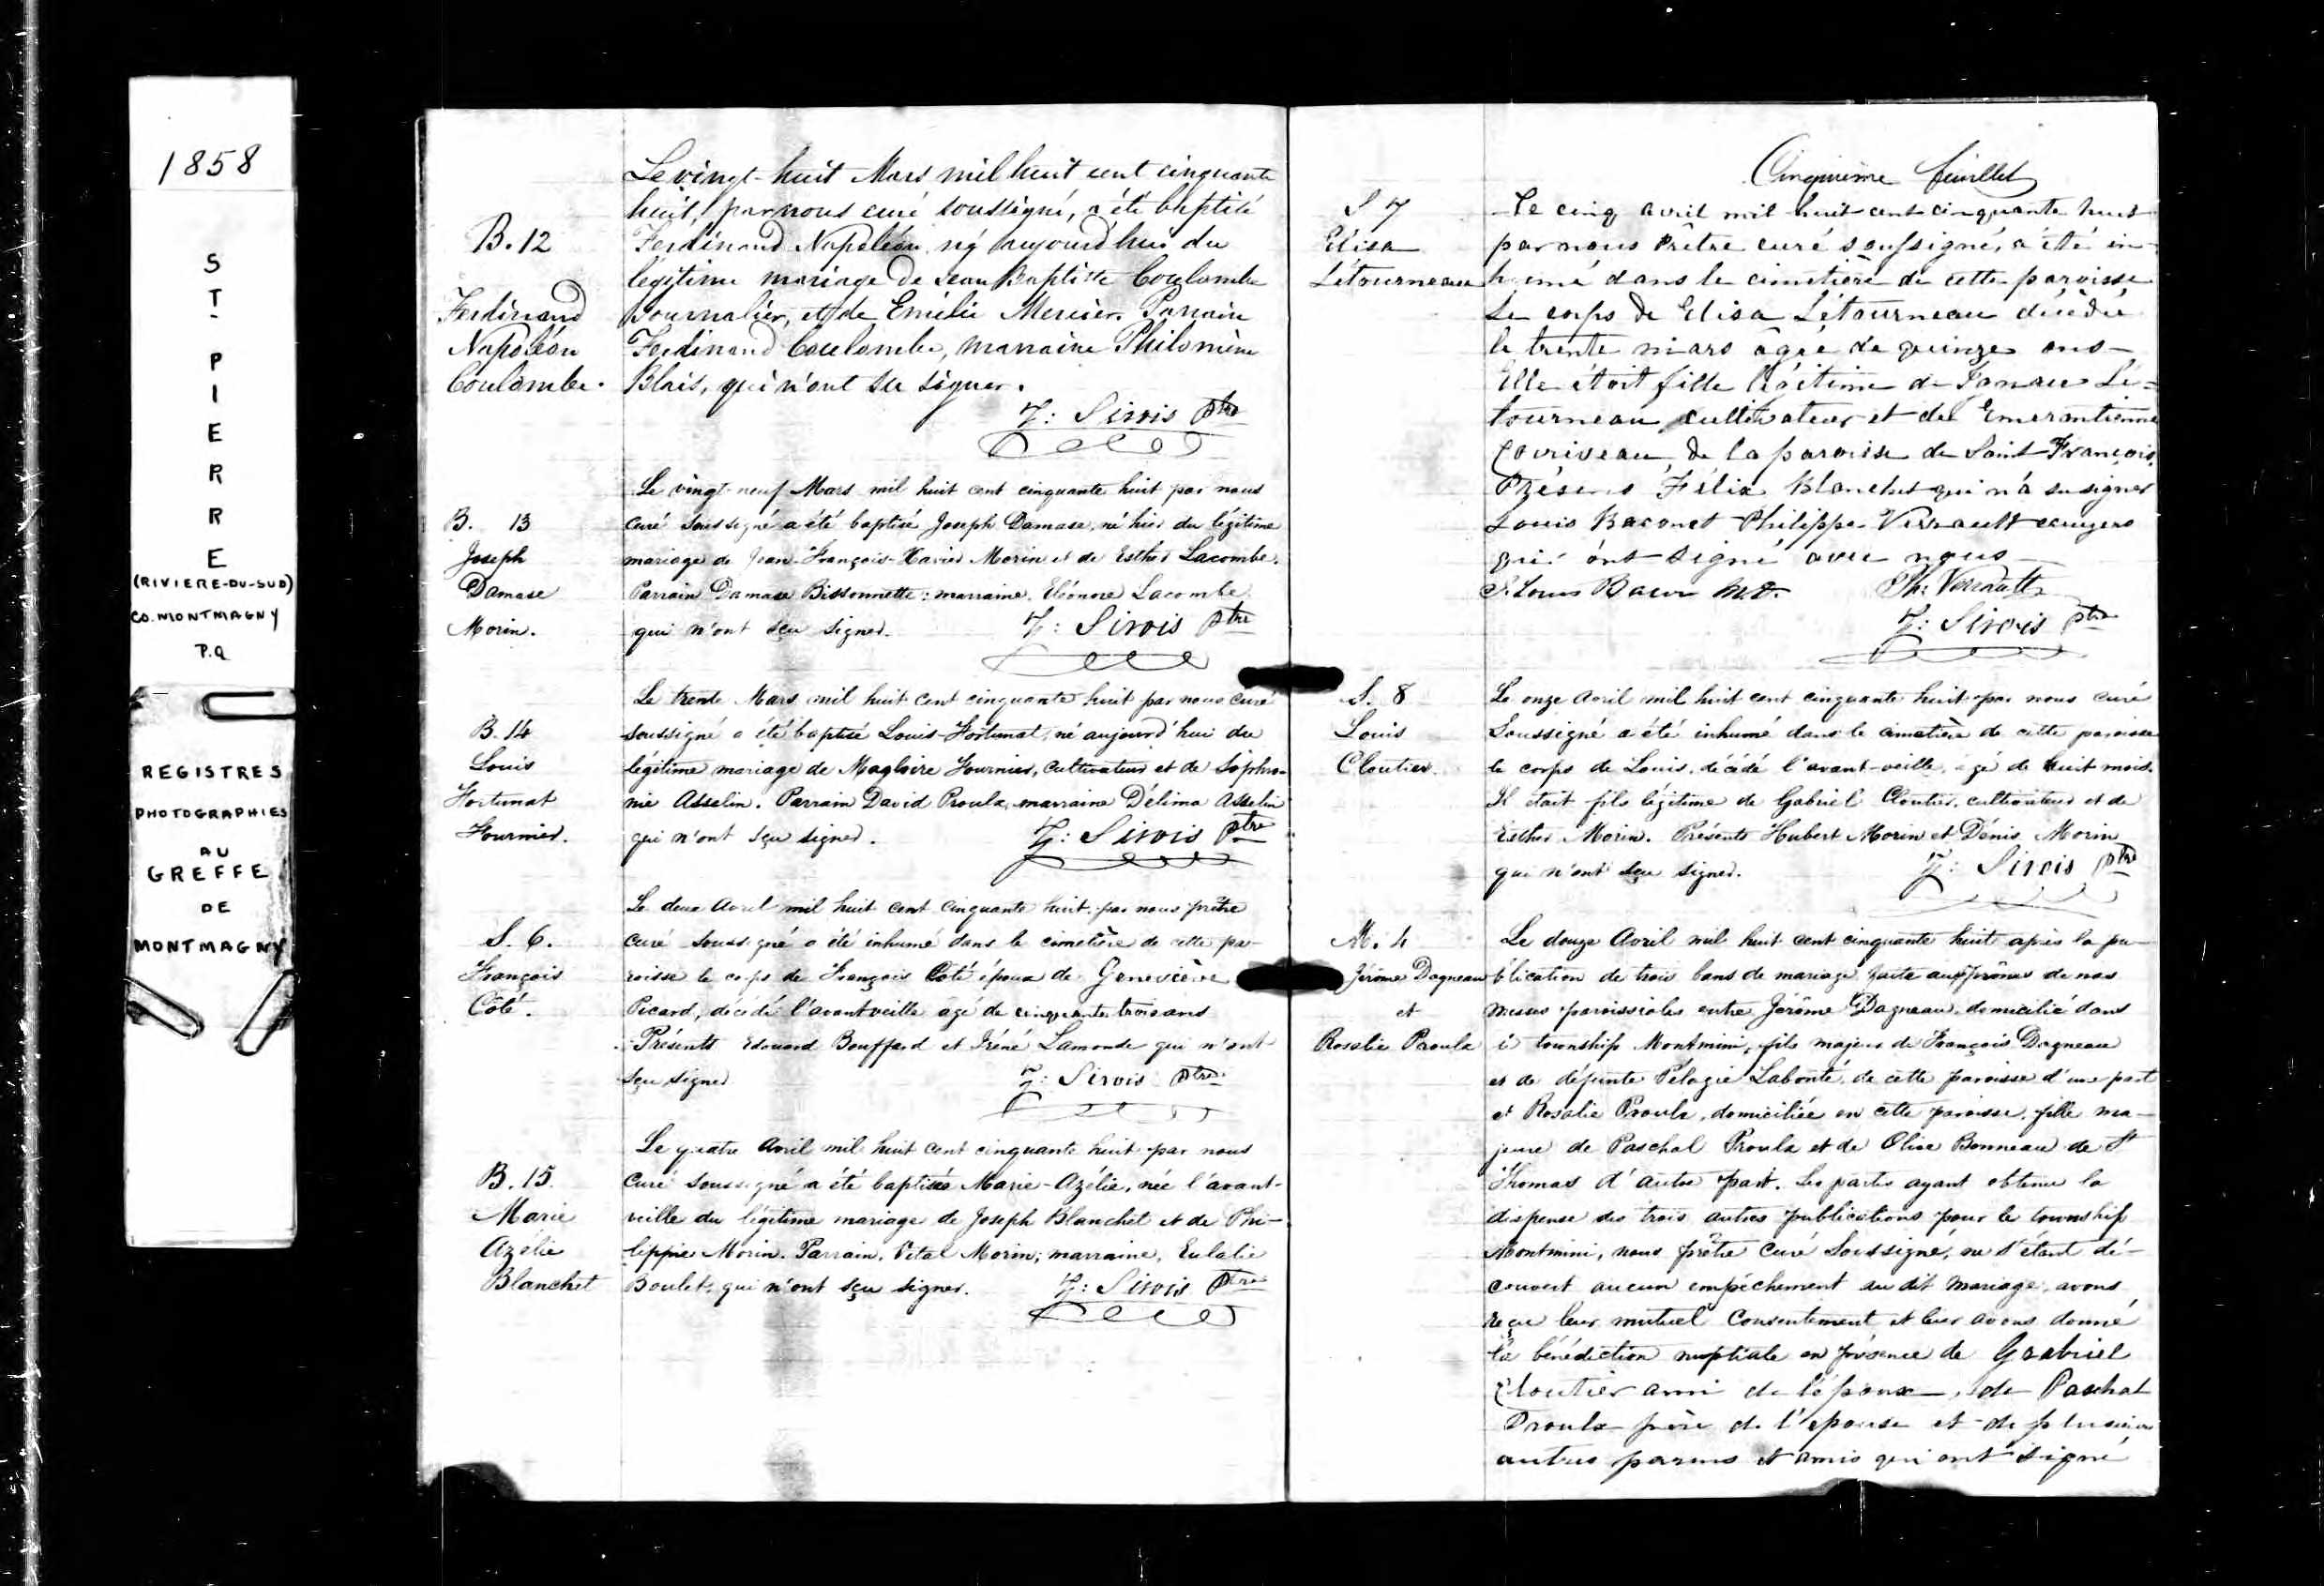 1858
S
T
P
I
E
R
R
E
(RIVIERE-DU-SUD)
CO. MONTMAGNY
P.Q
REGISTRES
PHOTOGRAPHIES
AU
GREFFE
DE
MONTMAGNY
Le vingt-huit Mars mil huit cent cinquante
huit, par nous curé soussigné, a été baptisé
B. 12
Ferdinand Napoléon né aujourd'hui du
légitime mariage de Jean Baptiste Coulombe
Ferdinand
Journalier, et de Emélie Mercier. Parrain
Napoléon
Ferdinand Coulombe, marraine Philomène
Coulombe.
Blais, qui n'ont su signer.
Z: Sirois Ptre
Le vingt-neuf Mars mil huit cent cinquante huit par nous
B. 13
curé soussigné a été baptisé Joseph Damase, né hier du légitime
Joseph
mariage de Jean-François-Xavier Morin et de Esther Lacombe.
Damase
Parrain Damase Bissonnette; marraine, Eléonore Lacombe
Morin.
qui n'ont sçu signer. Z: Sirois Ptre
Le trente Mars mil huit cent cinquante huit par nous curé
B. 14
soussigné a été baptisé Louis-Fortunat, né aujourd'hui du
Louis
légitime mariage de Magloire Fournier, cultivateur et de Sophro-
Fortunat
nie Asselin. Parrain David Proulx, marraine Délima Asselin
Fournier.
qui n'ont sçu signer. Z: Sirois Ptre
Le deux Avril mil huit cent cinquante huit, par nous prêtre
S. 6.
curé soussigné a été inhumé dans le cimetière de cette pa-
François
roisse le corps de François Coté époux de Geneviève
Côté.
Picard, décédé l'avant veille agé de cinquante trois ans
Présents Edouard Bouffard et Iréné Lamonde qui n'ont
sçu signer Z: Sirois Ptre
Le quatre Avril mil huit cent cinquante huit par nous
B. 15.
Curé soussigné a été baptisée Marie-Azélie, née l'avant-
Marie
veille du légitime mariage de Joseph Blanchet et de Phi-
Azélie
lippie Morin. Parrain, Vital Morin; marraine, Eulalie
Blanchet
Boulet, qui n'ont sçu signer. Z: Sirois Ptre
Cinquième feuillet
S 7
Le cinq avril mil huit cent cinquante huit
Elisa
par nous Prêtre curé soussigné, a été in-
Létourneau
humé dans le cimetière de cette paroisse
Le corps de Elisa Létourneau décédée
le trente mars âgée de quinze ans
Elle étoit fille légitime de Lé=
tourneau cultivateur et de Emerantienne
Couriveau de la paroisse de Saint-François.
Présens Félix Blanchet qui n'a su signer
Louis Bacon et Philippe Verrault ecuyers
qui ont signé avec nous
S. Louis Bacon M.D. Ph: Verrault
Z: Sirois Ptre
S. 8
Le onze Avril mil huit cent cinquante huit par nous curé
Louis
Soussigné a été inhumé dans le cimetière de cette paroisse
Cloutier.
le corps de Louis, décédé l'avant-veille, agé de huit mois.
Il était fils légitime de Gabriel Cloutier, cultivateur et de
Esther Morin. Présents Hubert Morin et Dénis Morin
qui n'ont sçu signer. Z: Sirois Ptre
M. 4
Le douze Avril mil huit cent cinquante huit après la pu-
Jérôme Dagneau
blication de trois bans de mariage faite aux prônes de nos
et
messes paroissiales entre Jérôme Dagneau, domicilié dans
Rosalie Proulx
le township Montmini, fils majeur de François Dagneau
et de défunte Pélagie Labonté, de cette paroisse d'une part
et Rosalie Proulx, domiciliée en cette paroisse, fille ma-
jeure de Paschal Proulx et de Olive Bonneau de St
Thomas d'autre part. Les parties ayant obtenu la
dispense des trois autres publications pour le township
Montmini, nous prêtre curé Soussigné, ne s'étant dé-
couvert aucun empêchement au dit mariage, avons
reçu leur mutuel Consentement et leur avons donné
la bénédiction nuptiale en présence de Gabriel
Cloutier ami de l'époux, de Paschal
Proulx père de l'épouse et de plusieurs
autres parens et amis qui ont signé